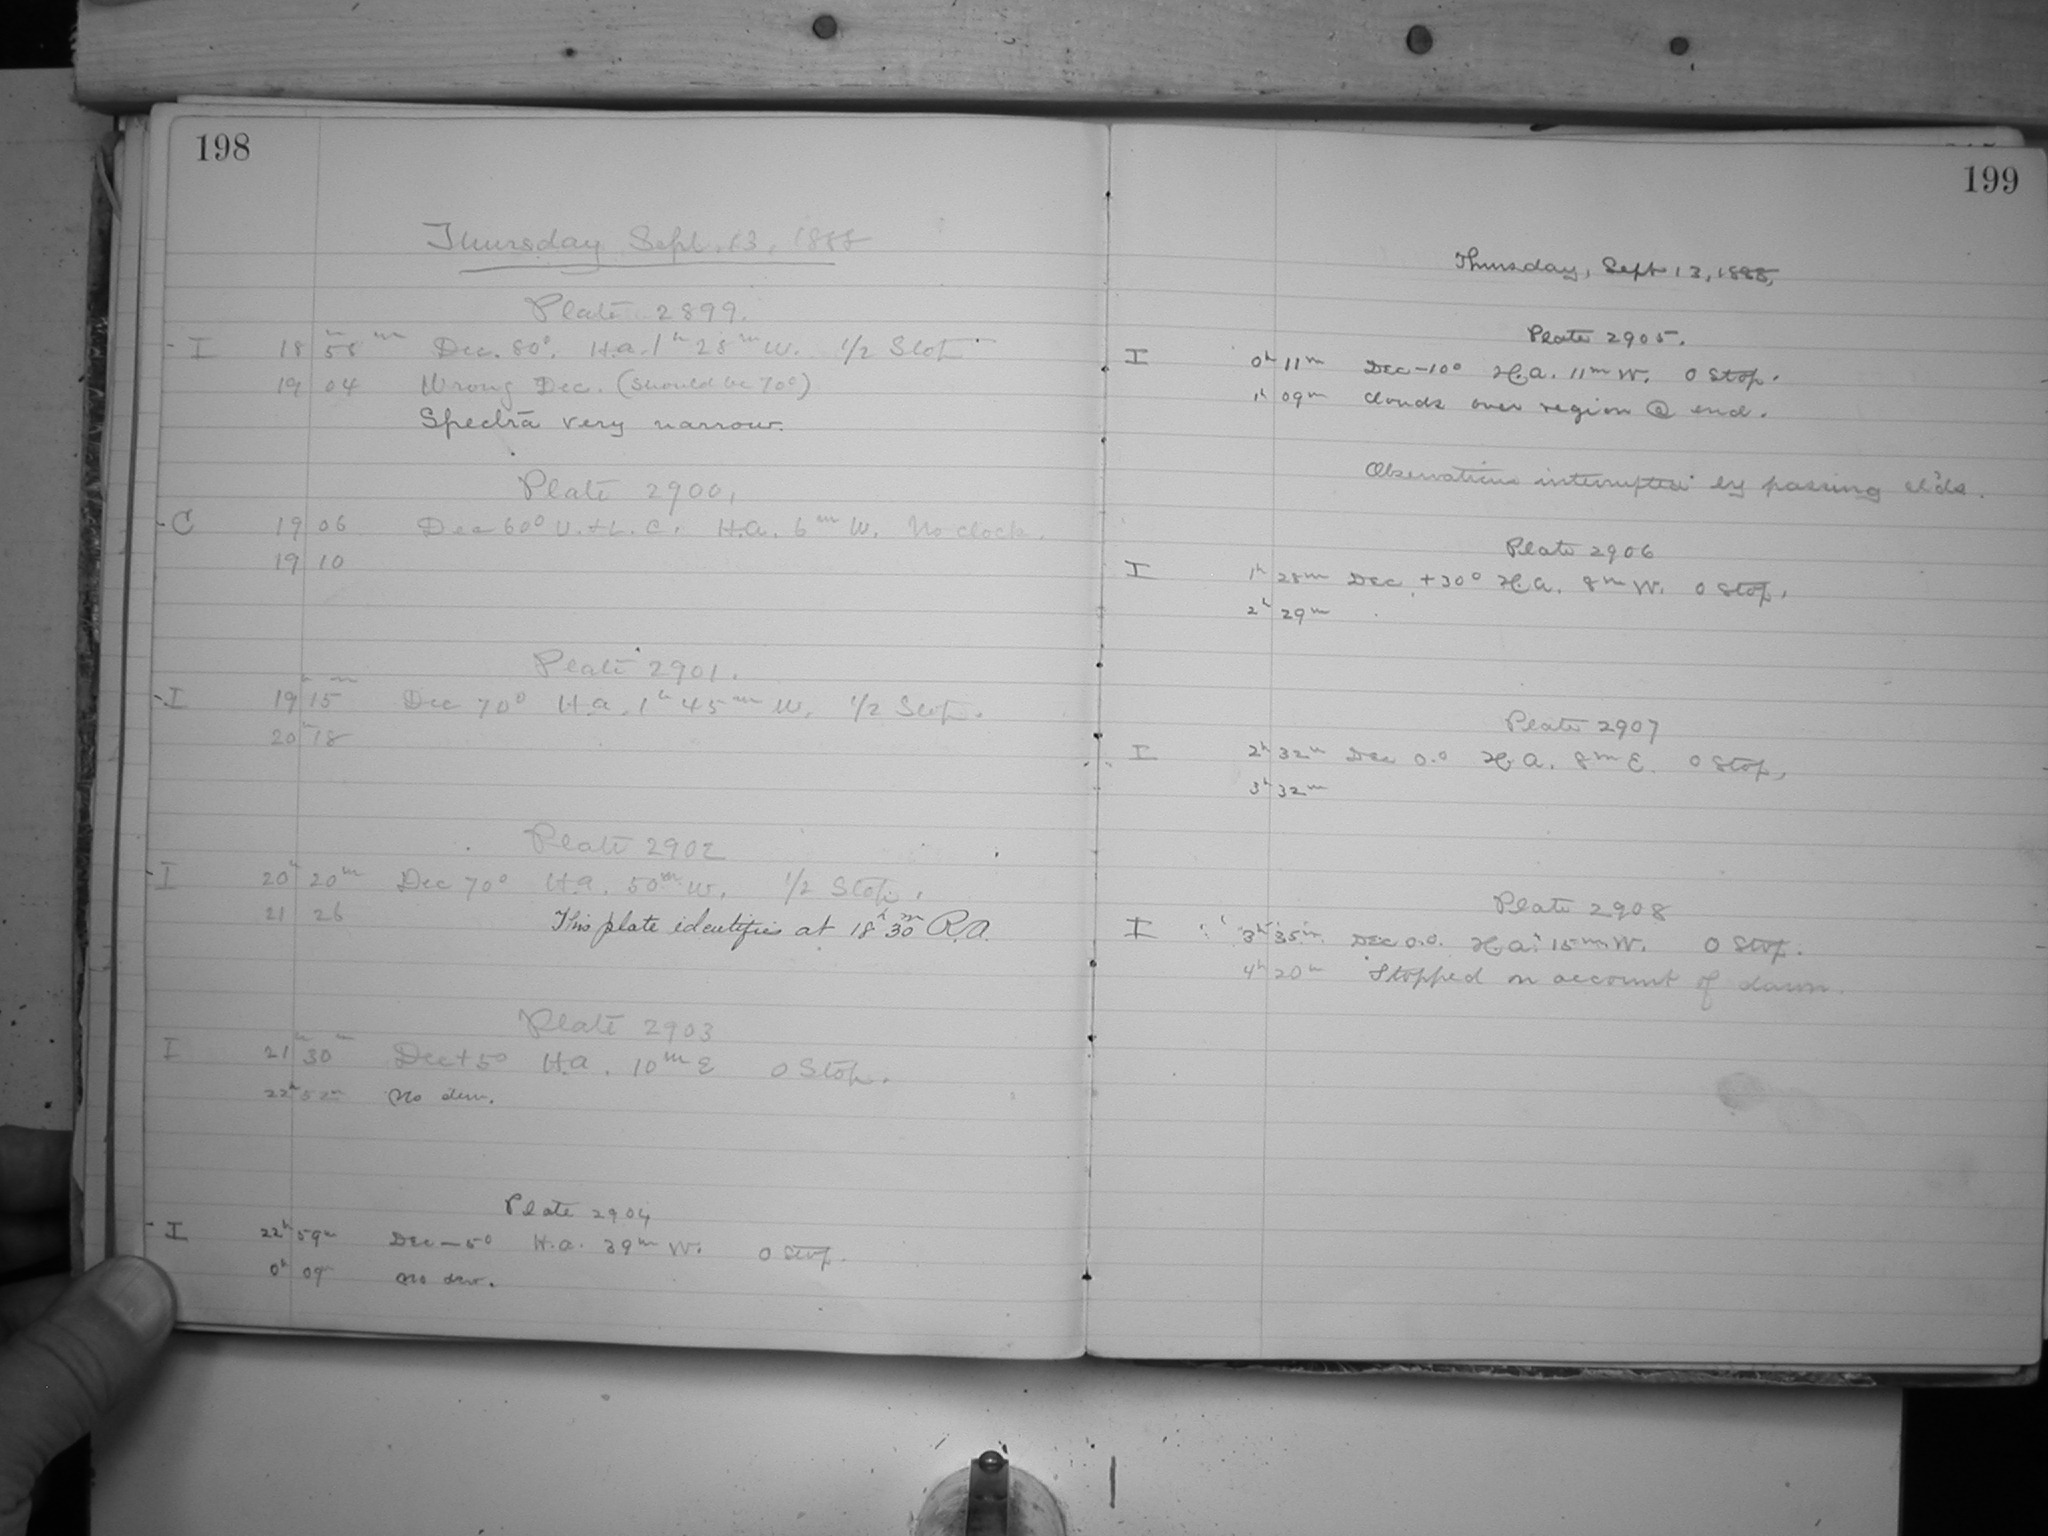 198
Thursday Sept. 13, 1888
Plate 2899.
I 18 58 m Dec. 80°. H.a. 1h 28m W. 1/2 Stop
19 04 Wrong Dec. (Should be 70°)
Spectra very narrow.
Plate 2900,
C 19 06 Dec 60° U. + L. C. H.a. 6m W. No clock.
19 10
Plate 2901.
I 19h 15m Dec 70° H.a. 1h 45m W. 1/2 Stop.
20h 18
Plate 2902
I 20h 20m Dec 70° H.a. 50m W. 1/2 Stop.
21 26 This plate identifies at 18h 30m R.A.
Plate 2903
I 21h 30m Dec + 5° H.a. 10m E 0 Stop.
22h 52m No dew.
Plate 2904
I 22h 59m Dec – 5° H.a. 39m W. 0 Stop.
0h 09m No dew.
199
Thursday, Sept 13, 1888,
Plate 2905.
I 0h 11m Dec – 10° H.a. 11m W. 0 Stop.
1h 09m clouds over region @ end.
Observations interrupted by passing cl'ds.
Plate 2906
I 1h 28m Dec. + 30° H.a. 8m W. 0 Stop.
2h 29m
Plate 2907
I 2h 32m Dec 0.0 H.a. 8m E. 0 Stop,
3h 32m
Plate 2908
I 3h 35m Dec 0.0. H.a. 15m W. 0 Stop.
4h 20m Stopped on account of dawn.